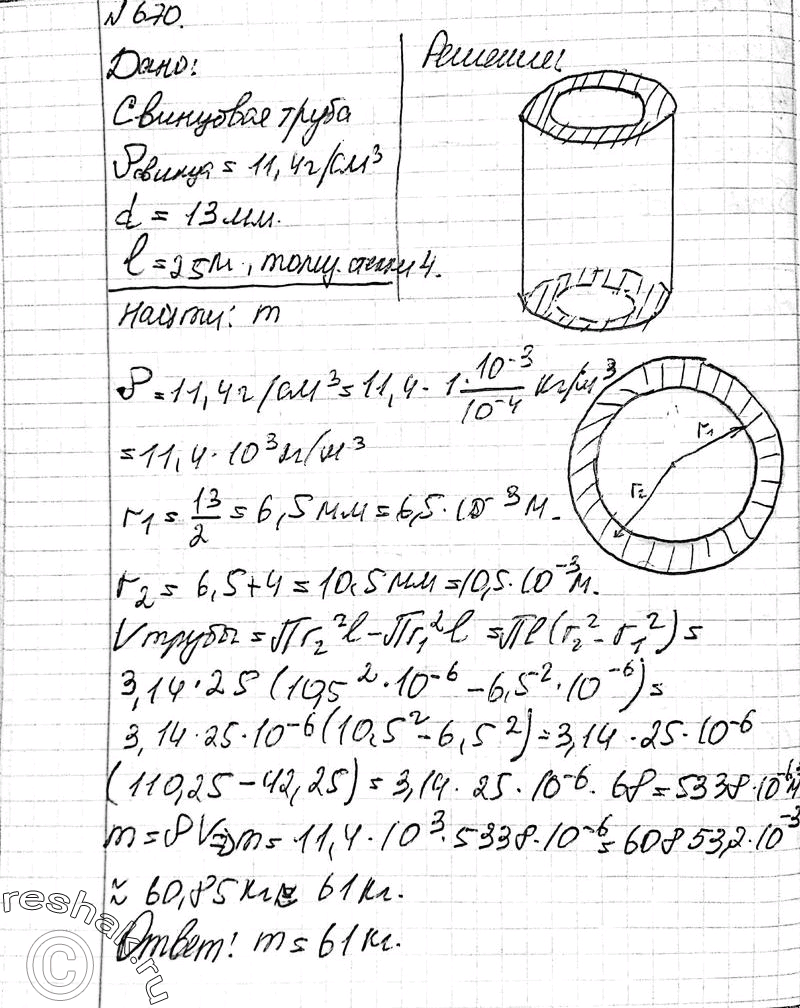 №670.
Дано:
Решение:
Свинцовая труба
ρсвинца = 11,4 г/см³
d = 13 мм.
l = 25 м, толщ. стенки 4.
Найти: m
ρ = 11,4 г/см³ = 11,4 · 1·10⁻³/10⁻⁴ кг/м³
= 11,4 · 10³ кг/м³
r₁
r₂
r₁ = 13/2 = 6,5 мм = 6,5 · 10⁻³ м.
r₂ = 6,5 + 4 = 10,5 мм = 10,5 · 10⁻³ м.
Vтрубы = Пr₂²l − Пr₁²l = Пl(r₂² − r₁²) =
3,14 · 25 (10,5² · 10⁻⁶ − 6,5² · 10⁻⁶) =
3,14 · 25 · 10⁻⁶ (10,5² − 6,5²) = 3,14 · 25 · 10⁻⁶
(110,25 − 42,25) = 3,14 · 25 · 10⁻⁶ · 68 = 5338 · 10⁻⁶ м³
m = ρV ⇒ m = 11,4 · 10³ · 5338 · 10⁻⁶ = 60853,2 · 10⁻³
≈ 60,85 кг ≈ 61 кг.
Ответ: m = 61 кг.
reshak.ru
©